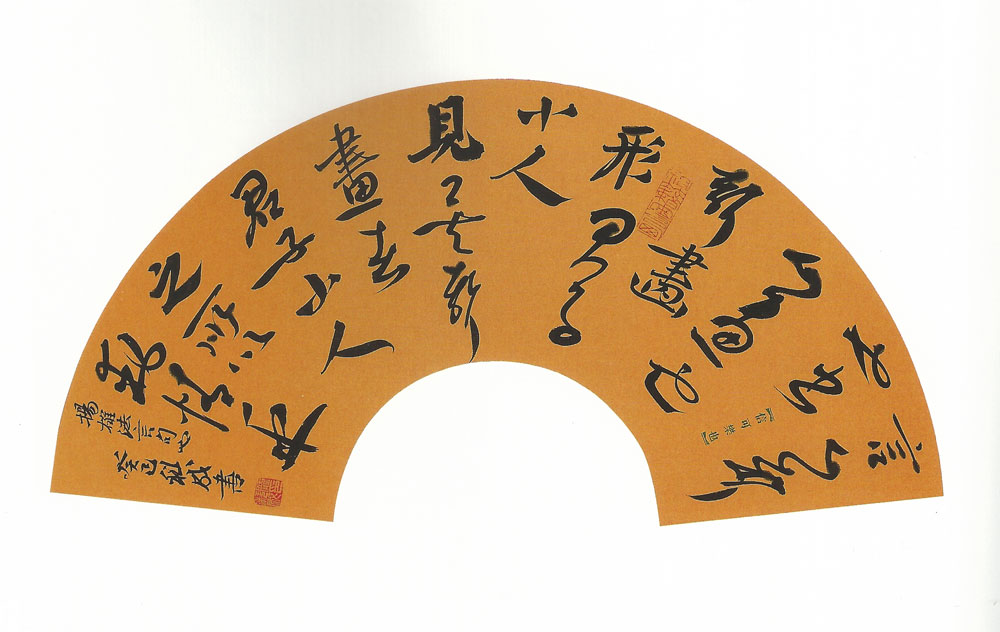 言心聲
也書
心畫也
聲畫
形君子
小人
見矣聲
畫者
君子小人
之所以
動情乎
揚雄法言句
癸巳成書
【信可樂也】